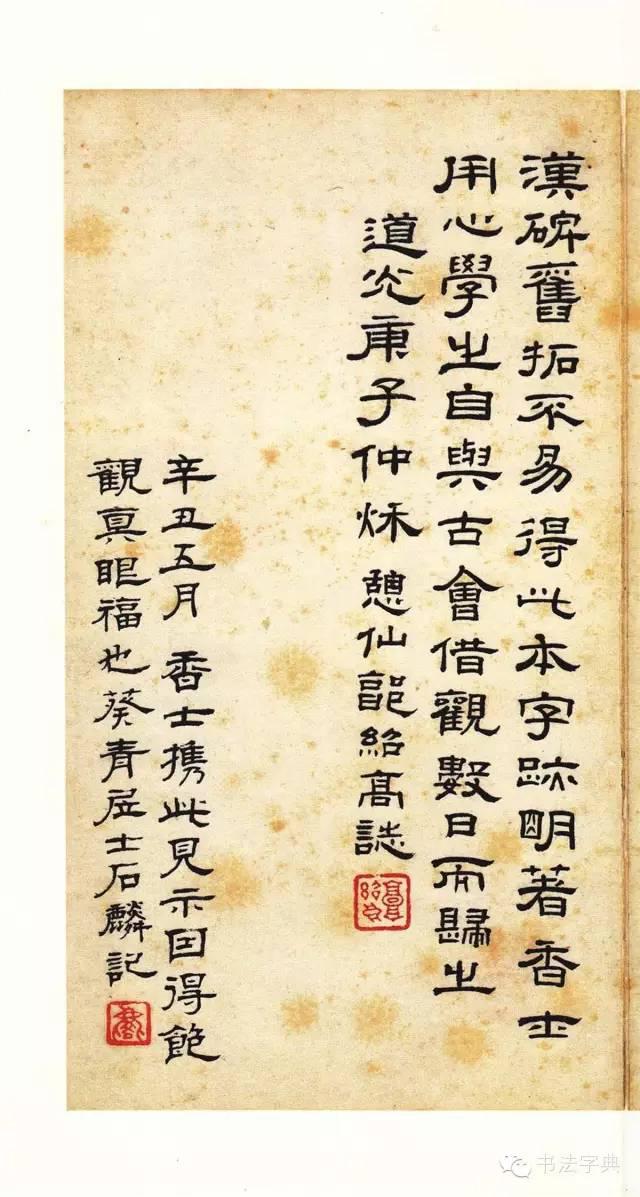 漢碑舊拓不易得此本字跡明著香士
用心學之自與古會借觀數日而歸之
道光庚子仲秌憩仙郭紹高誌
辛丑五月香士攜此見示因得飽
觀真眼福也葵青居士石麟記
书法字典